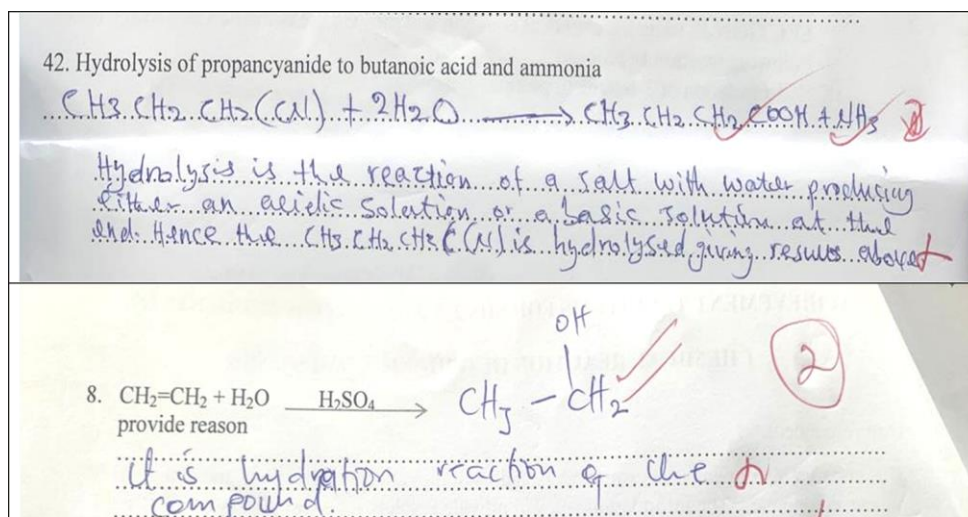 42. Hydrolysis of propancyanide to butanoic acid and ammonia
CH3.CH2.CH2(CN) + 2H2O → CH3.CH2.CH2.COOH + NH3
Hydrolysis is the reaction of a salt with water producing
either an acidic solution or a basic solution at the
end. Hence the CH3.CH2.CH2C(N) is hydrolysed giving results above
OH
8. CH₂=CH₂ + H₂O H₂SO₄ → CH3 - CH2
2
provide reason
It is hydration reaction of the
compound.